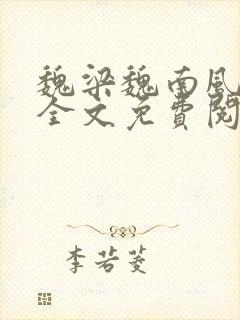 魏梁魏南风
全文免费阅
李若菱